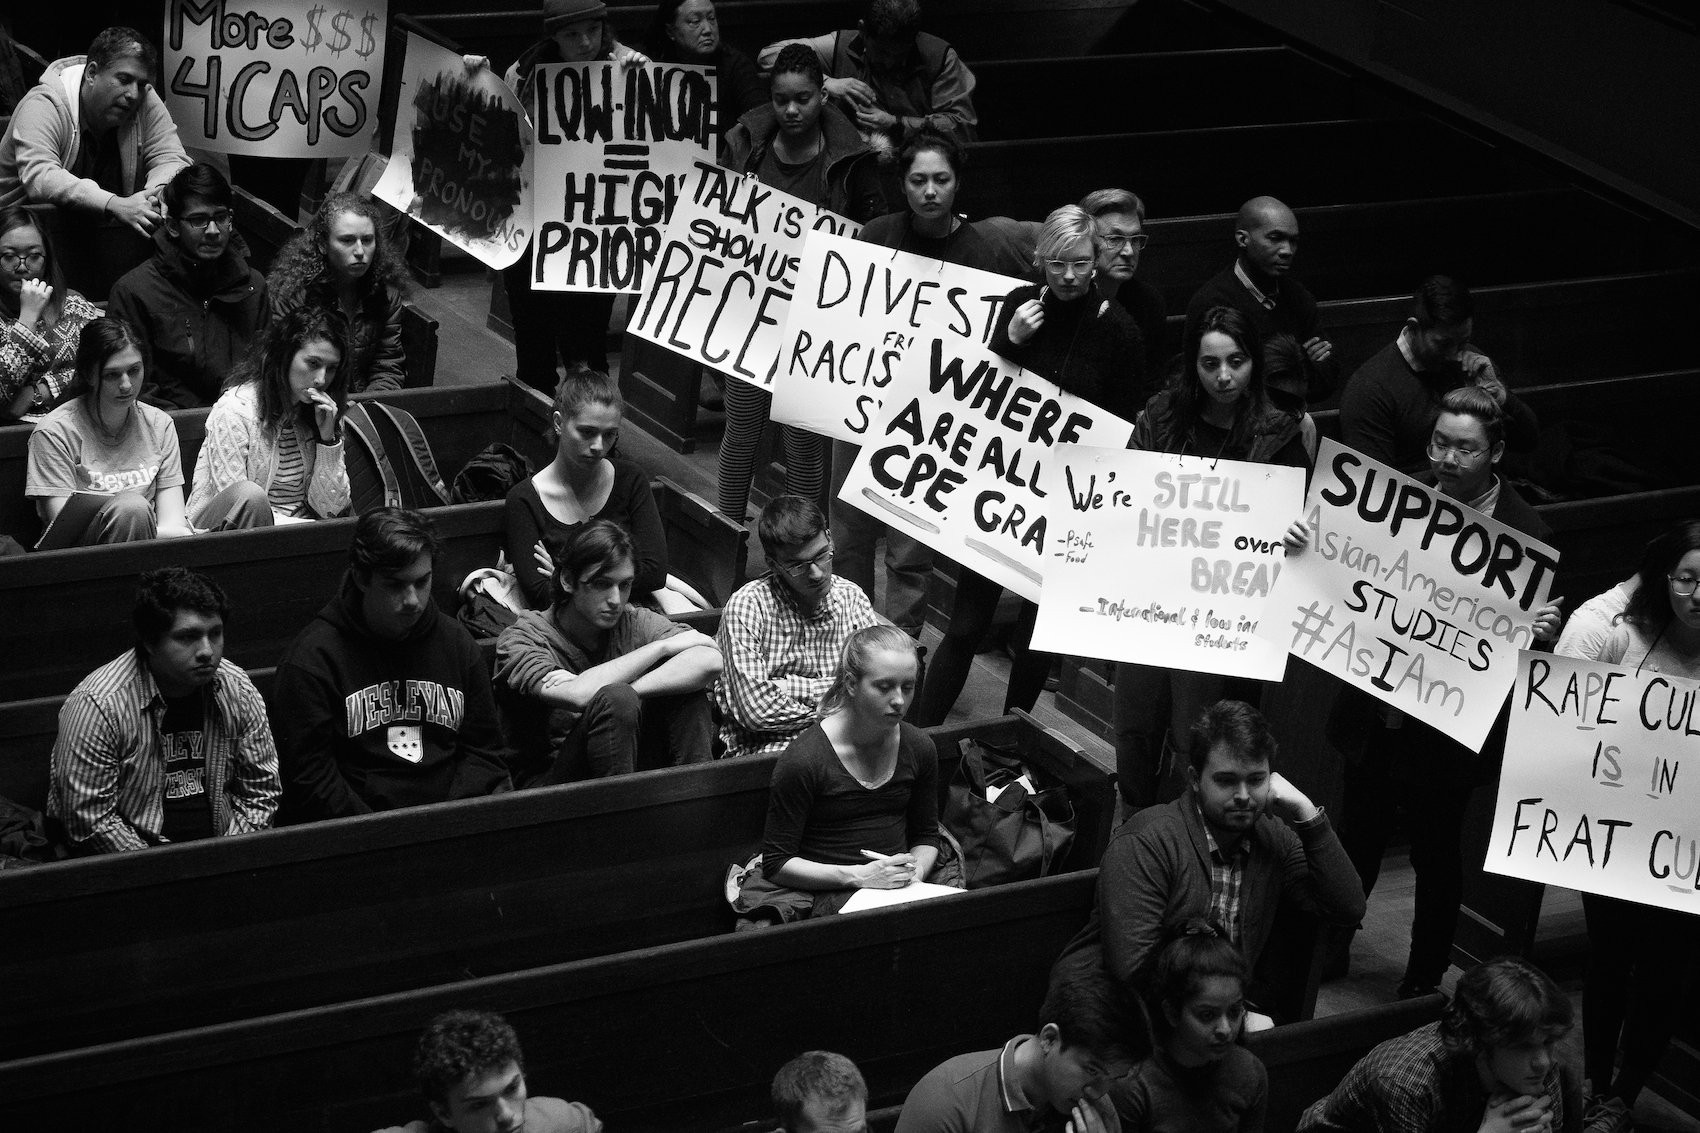 More $$$
4 CAPS
USE
MY
PRONOUNS
LOW-INCOME
=
HIGH
PRIOR
TALK iS
SHOW US
RECE
DIVEST
RACIS
WHERE
ARE ALL
CPE GRA
We're STILL
HERE over
BREA
-Psafe
-Food
-International & low in
students
SUPPORT
Asian-American
STUDIES
#AsIAm
RAPE CUL
IS IN
FRAT CUL
Bernie
WESLEYAN